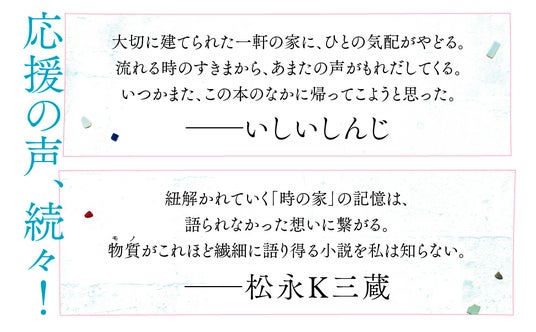 応援の声、続々！
大切に建てられた一軒の家に、ひとの気配がやどる。
流れる時のすきまから、あまたの声がもれだしてくる。
いつかまた、この本のなかに帰ってこようと思った。
――いしいしんじ
紐解かれていく「時の家」の記憶は、
語られなかった想いに繋がる。
物質がこれほど繊細に語り得る小説を私は知らない。
モノ
――松永K三蔵